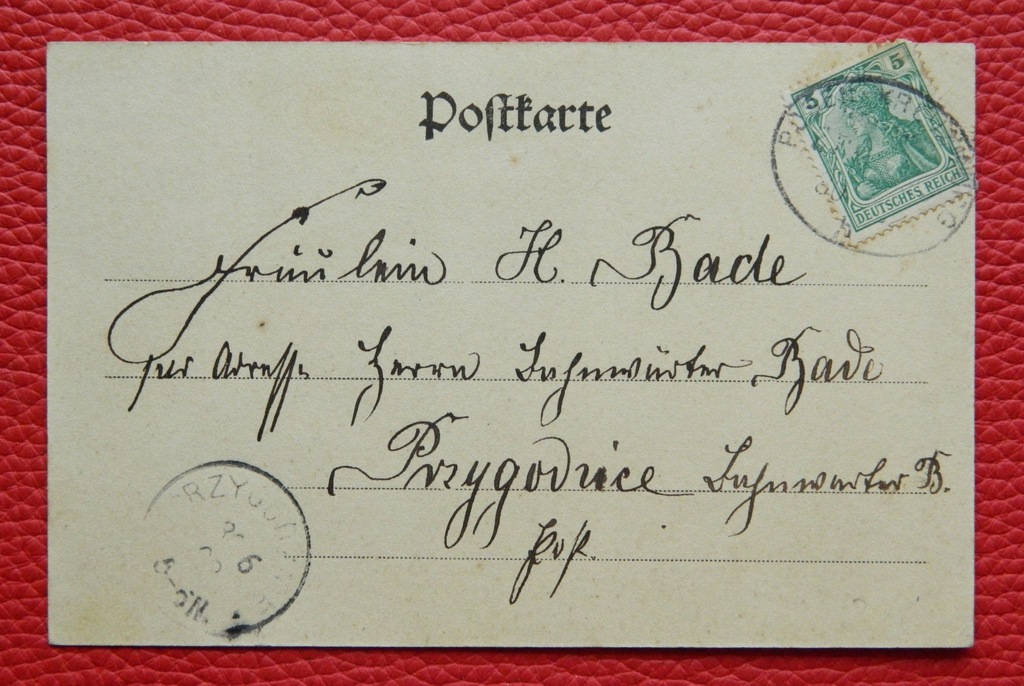 Postkarte
5 5
DEUTSCHES REICH
Fräulein H. Bade
per Adresse Herrn Bahnwärter Bade
Przygodzice Bahnwärter B.
Post.
RZYGO